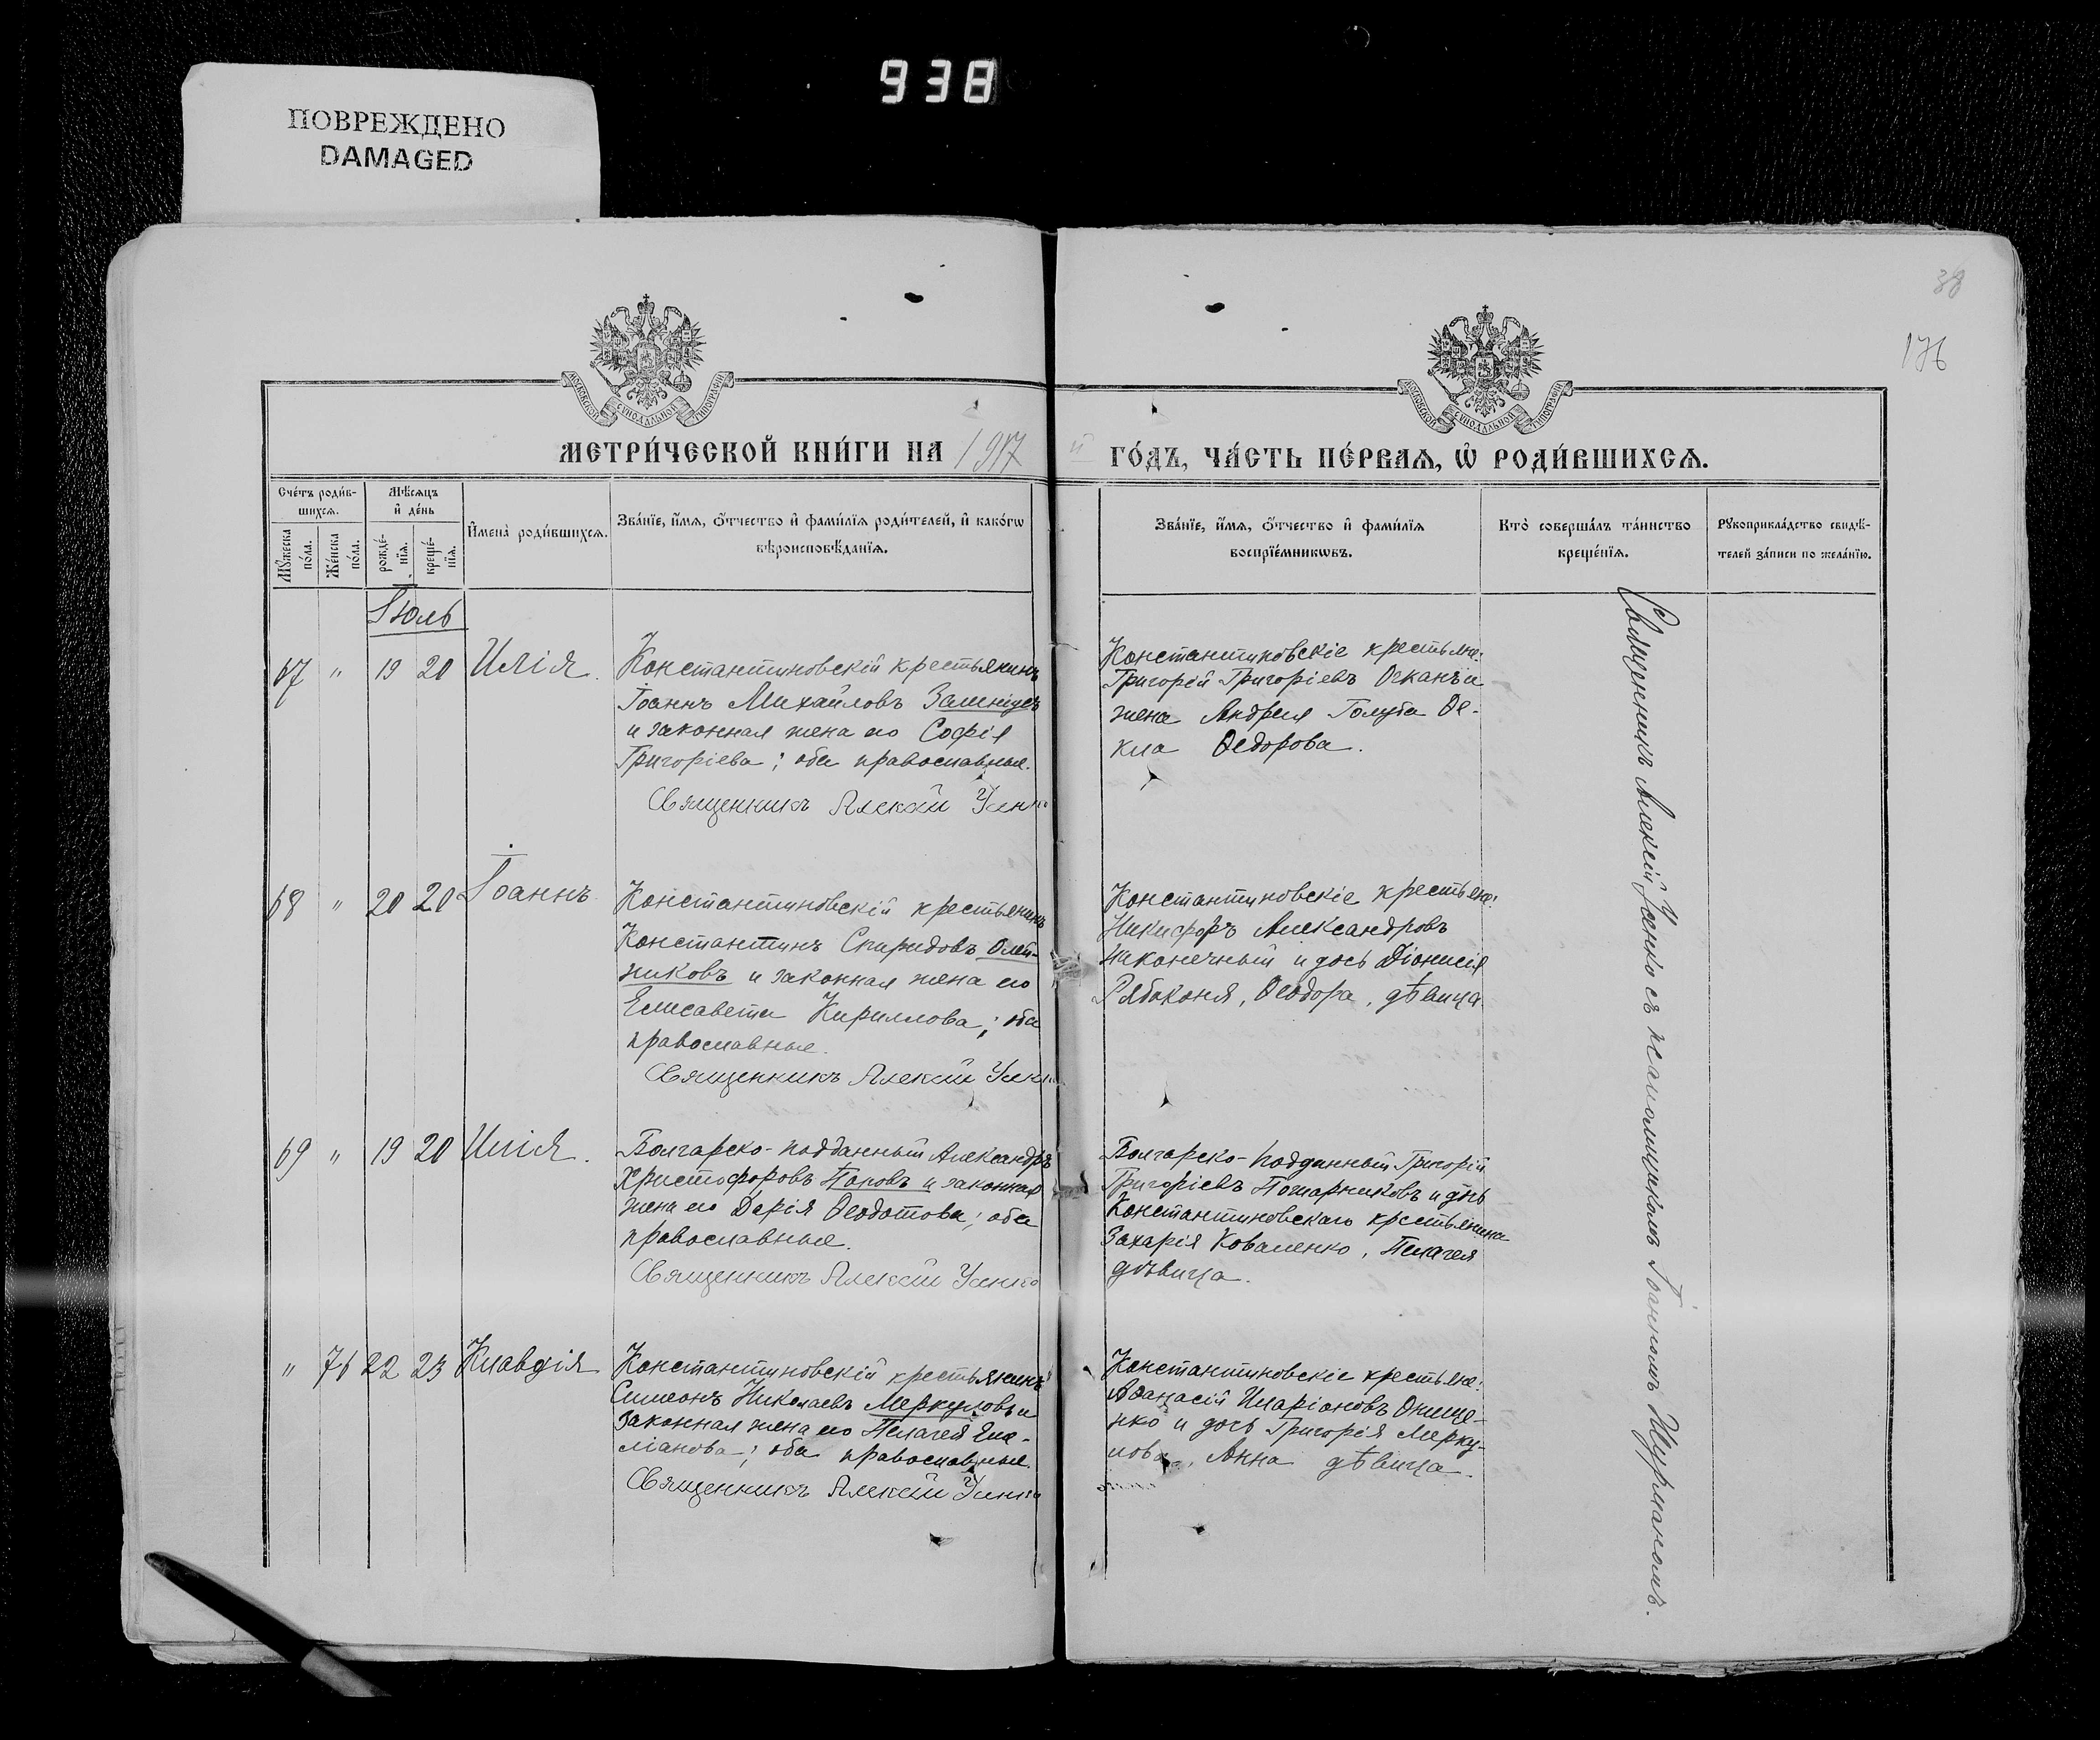 938
ПОВРЕЖДЕНО
DAMAGED
38
176
МОСКОВСКОЙ СѴНОДАЛЬНОЙ ТИПОГРАФІИ
МОСКОВСКОЙ СѴНОДАЛЬНОЙ ТИПОГРАФІИ
МЕТРИ́ЧЕСКОЙ КНИ́ГИ НА 1917 й ГО́ДЪ, ЧА́СТЬ ПЕ́РВАЯ, Ѡ҆ РОДИ́ВШИХСЯ.
Сче́тъ роди́в-
шихся.
Мѣ́сяцъ
и҆ де́нь
Мꙋ́жеска
по́ла.
Же́нска
по́ла.
рожде́-
нїя.
креще́-
нїя.
И҆мена̀ роди́вшихся.
Зва́нїе, и҆́мя, ѻ҆́тчество и҆ фами́лїя роди́телей, и҆ како́гѡ
вѣроисповѣ́данїя.
Зва́нїе, и҆́мя, ѻ҆́тчество и҆ фами́лїя
воспрїе́мникѡвъ.
Кто̀ соверша́лъ та́инство
креще́нїя.
Рꙋкоприкла́дство свидѣ́-
телей за́писи по жела́нїю.
Іюль
67 " 19 20 Илія.
Константиновскій крестьянинъ
Іоаннъ Михайловъ
и законная жена его Софія
Григоріева; оба православные.
Священникъ Алексій Усенко
Константиновскіе крестьяне:
Григорій Григоріевъ и
жена Андрея Голуба Ѳе-
кла Ѳедорова.
68 " 20 20 Іоаннъ
Константиновскій крестьянинъ
Константинъ Спиридовъ Олей-
никовъ и законная жена его
Елисавета Кириллова; оба
православные.
Священникъ Алексій Усенко
Константиновскіе крестьяне:
Никифоръ Александровъ
Наконечный и дочь Діонисія
Рябоконя, Ѳеодора, дѣвица
69 " 19 20 Илія.
Болгарско-подданный Александръ
Христофоровъ Поповъ и законная
жена его Дарія Ѳеодотова; оба
православные.
Священникъ Алексій Усенко
Болгарско-подданный Григорій
Григоріевъ Пожарниковъ и дочь
Константиновскаго крестьянина
Захарія Коваленко, Пелагея
дѣвица.
" 76 22 23 Клавдія
Константиновскій крестьянинъ
Симеонъ Николаевъ Меркуловъ и
законная жена его Пелагея Еме-
ліанова; оба православные.
Священникъ Алексій Усенко
Константиновскіе крестьяне:
Аѳанасій Иларіоновъ Онище-
нко и дочь Григорія Мерку-
лова, Анна дѣвица.
Священникъ Алексій Усенко съ псаломщикомъ Іоанномъ Шурманомъ.